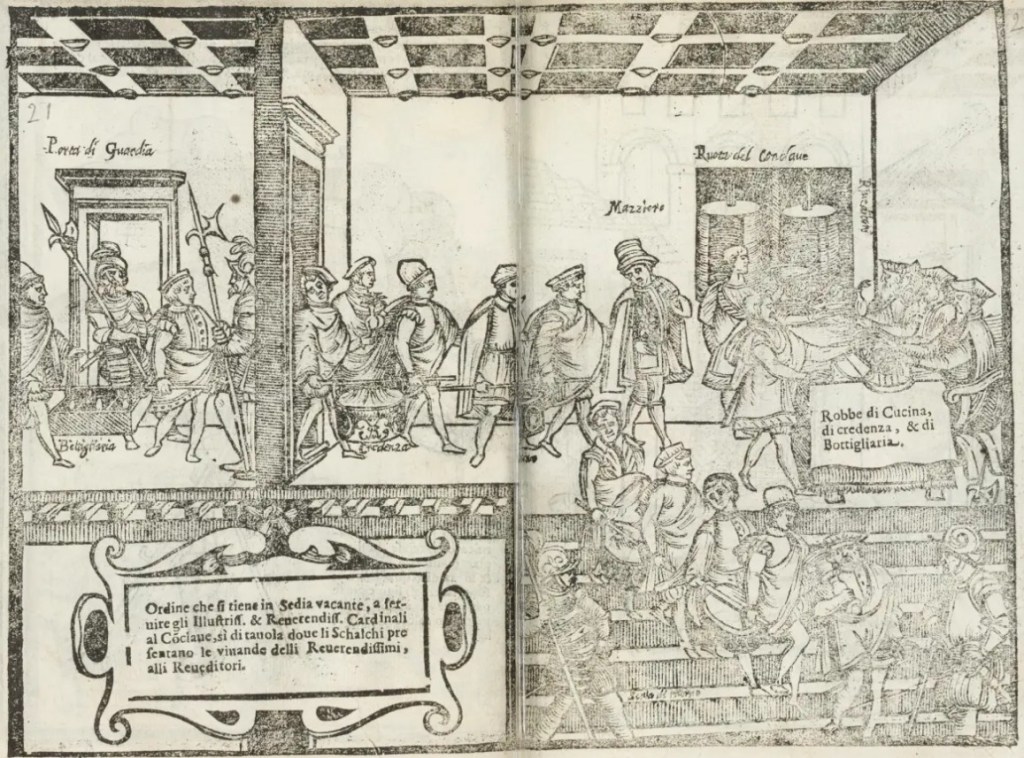 21
Porta di Guardia
Ruota del Conclave
Mazziero
Credenza
Robbe di Cucina,
di credenza, & di
Bottigliaria.
Ordine che si tiene in Sedia vacante, a ser-
uire gli Illustriss. & Reuerendiss. Cardinali
al Cōclaue, sì di tauola doue li Schalchi pre
sentano le viuande delli Reuerendissimi,
alli Reueditori.